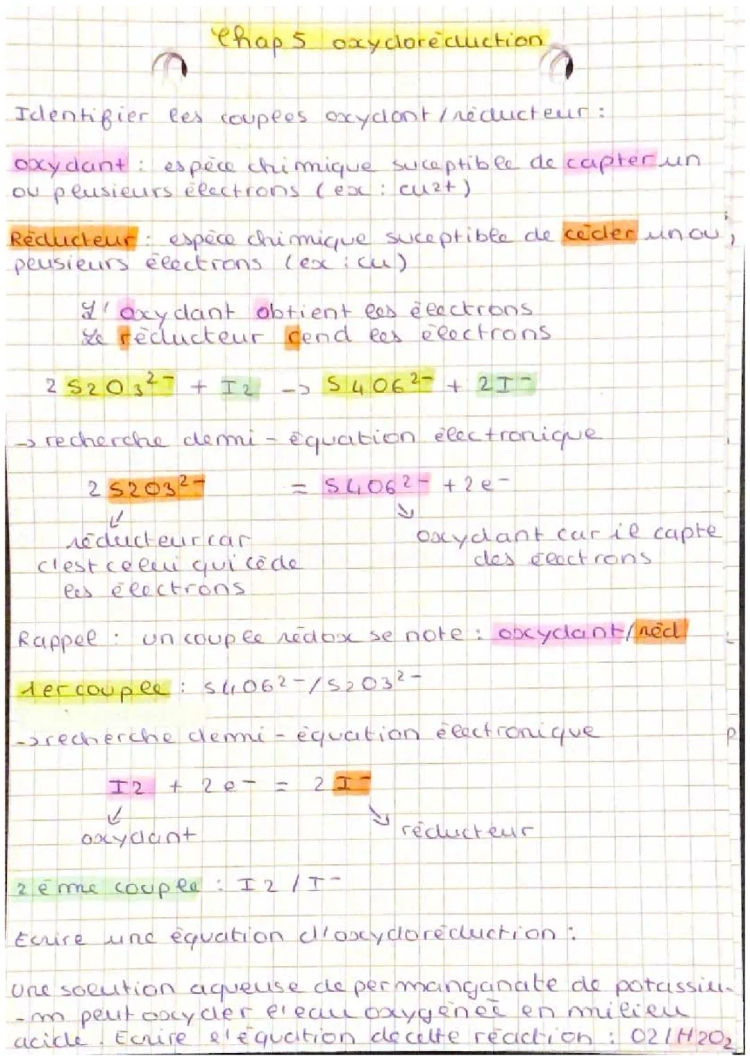 Chap 5 oxydoréduction
Identifier les couples oxydant/réducteur :
oxydant : espèce chimique suceptible de capter un
ou plusieurs électrons (ex : cu2+)
Réducteur : espèce chimique suceptible de céder un ou
plusieurs électrons (ex : cu)
L'oxydant obtient les électrons
Le réducteur rend les électrons
2 S2O3²⁻ + I2 -> S4O6²⁻ + 2I⁻
-> recherche demi-équation électronique
2 S2O3²⁻ = S4O6²⁻ + 2e⁻
réducteur car
c'est celui qui cède
les électrons
oxydant car il capte
des électrons
Rappel : un couple rédox se note : oxydant/réd
1er couple : S4O6²⁻/S2O3²⁻
-> recherche demi-équation électronique
I2 + 2e⁻ = 2 I⁻
oxydant réducteur
2ème couple : I2/I⁻
Ecrire une équation d'oxydoréduction :
Une solution aqueuse de permanganate de potassiu-
-m peut oxyder l'eau oxygénée en milieu
acide. Ecrire l'équation de cette réaction : O2/H2O2